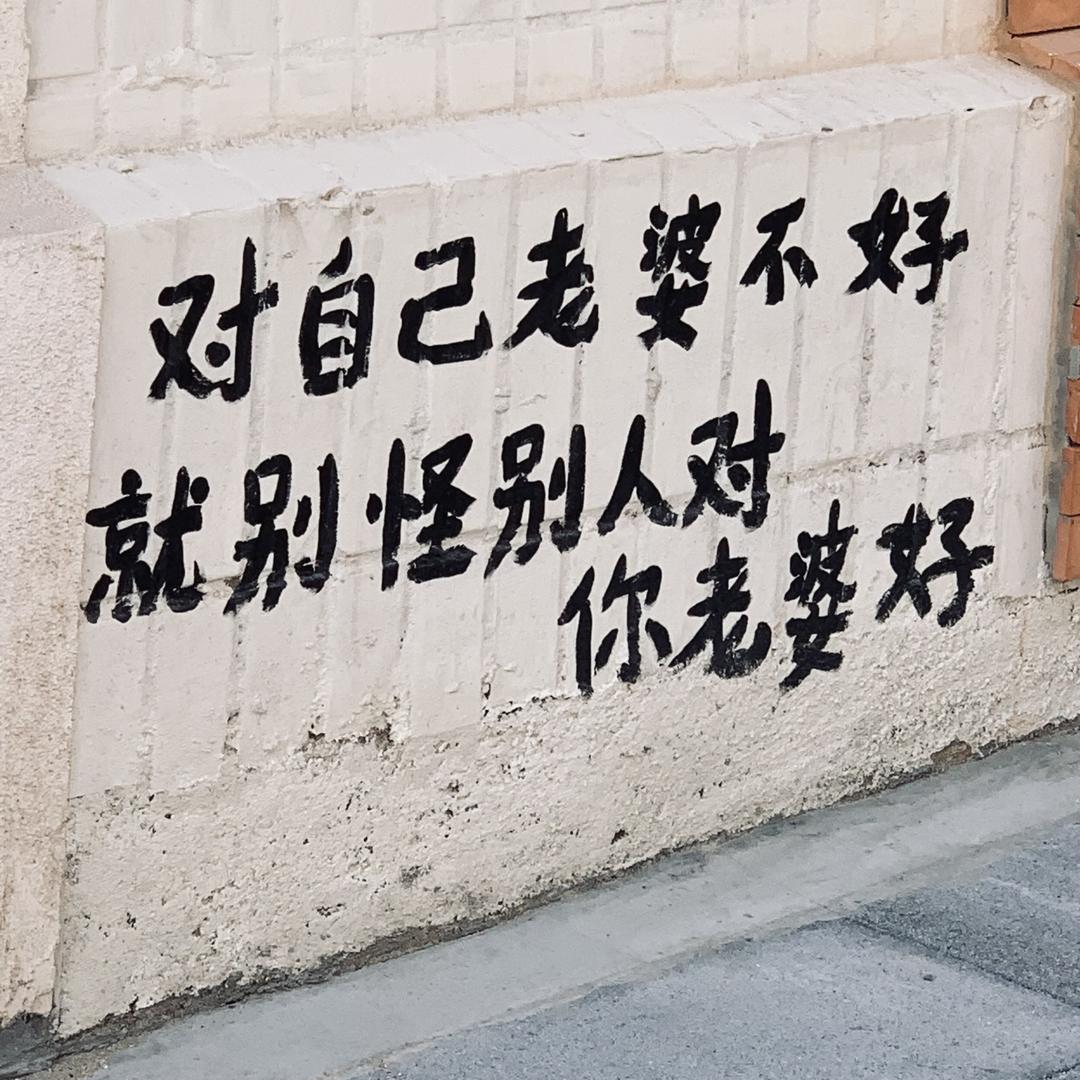 对自己老婆不好
就别怪别人对
你老婆好